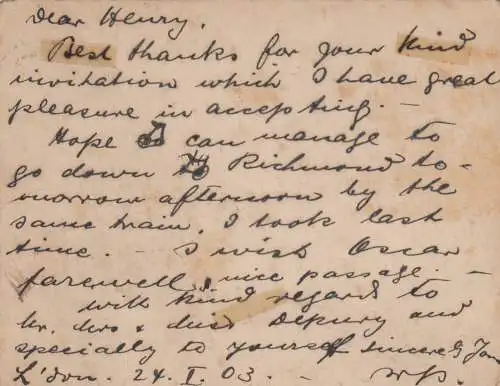 Dear Henry,
Best thanks for your kind
invitation which I have great
pleasure in accepting. —
Hope to can manage to
go down to Richmond to-
morrow afternoon by the
same train, I took last
time. — I wish Oscar
farewell, nice passage. —
with kind regards to
Mr. Mrs & Miss Depury and
specially to yourself sincerely
L'don. 24. I. 03.